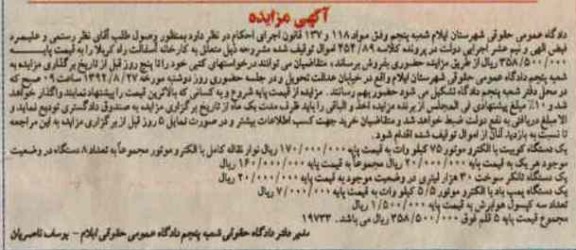 آگهی مزایده
دادگاه عمومی حقوقی شهرستان ایلام شعبه پنجم وفق مواد ۱۱۸ و ۱۳۷ قانون اجرای احکام در نظر دارد بمنظور وصول طلب آقای نظر رستمی و علیمرد
فیض الهی و نیم عشر اجرایی دولت در پرونده کلاسه ۴۵۴/۸۹ اموال توقیف شده مشروحه ذیل متعلق به کارخانه آسفالت راه کربلا را به قیمت پایه
۳۵۸/۵۰۰/۰۰۰ ریال از طریق مزایده حضوری بفروش برساند، متقاضیان می توانند درخواستهای کتبی خود را تا پنج روز قبل از تاریخ برگزاری مزایده به
شعبه پنجم دادگاه عمومی حقوقی شهرستان ایلام واقع در خیابان عدالت تحویل و در جلسه حضوری روز دوشنبه مورخه ۱۳۹۲/۸/۲۷ ساعت ۰۹ صبح که
در محل دفتر شعبه پنجم دادگاه تشکیل می شود حضور بهم رسانند. مزایده از قیمت پایه شروع و به کسانی که بالاترین قیمت را پیشنهاد نمایند واگذار خواهد
شد و ۱۰٪ پیشنهادی فی المجلس از برنده مزایده، اخذ و الباقی را باید ظرف مدت یک ماه از تاریخ برگزاری مزایده به صندوق دادگستری تودیع نماید و
الا مبلغ دریافتی به نفع دولت ضبط خواهد شد و متقاضیان خرید جهت کسب اطلاعات بیشتر و در صورت تمایل ۵ روز قبل از برگزاری مزایده به این مراجعه
تا نسبت به بازدید آنان از اموال توقیف شده اقدام شود.
یک دستگاه کوبیت با الکترو موتور ۷۵ کیلو وات به قیمت پایه ۱۷۰/۰۰۰/۰۰۰ ریال نوار نقاله کامل با الکترو موتور مجموعاً به تعداد ۸ دستگاه در وضعیت
موجود هر یک به قیمت پایه ۲۰/۰۰۰/۰۰۰ ریال مجموعاً به قیمت پایه ۱۶۰/۰۰۰/۰۰۰ ریال
یک دستگاه تانکر سوخت ۳۰ هزار لیتری در وضعیت موجود به قیمت پایه ۲۰/۰۰۰/۰۰۰ ریال
یک دستگاه پمپ باد با الکترو موتور ۵/۵ کیلو وات به قیمت پایه ۷/۰۰۰/۰۰۰ ریال
تعداد سه کپسول هوابرش به قیمت پایه ۱/۵۰۰/۰۰۰ ریال
مجموع قیمت پایه ۵ قلم فوق ۳۵۸/۵۰۰/۰۰۰ ریال می باشد. ۱۹۷۳۳
مدیر دفتر دادگاه حقوقی شعبه پنجم دادگاه عمومی حقوقی ایلام - یوسف ناصریان